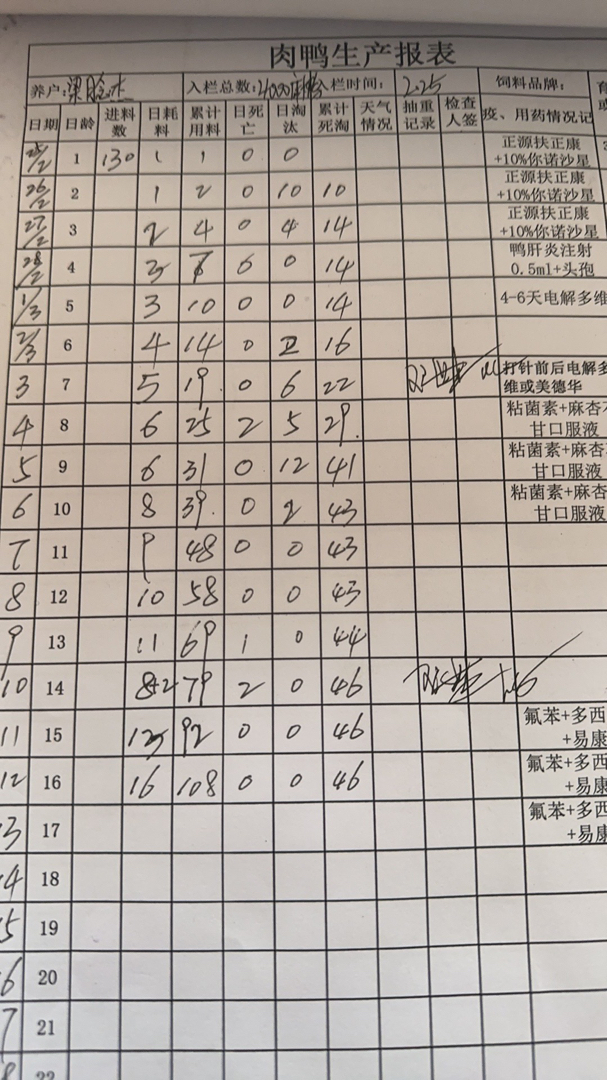 肉鸭生产报表
养户: 入栏总数: 4000 入栏时间: 2.25 饲料品牌:
日期 日龄 进料数 日耗料 累计用料 日死亡 日淘汰 累计死淘 天气情况 抽重记录 检查人签 疫、用药情况记
25/2 1 130 1 1 0 0 正源扶正康+10%你诺沙星
26/2 2 1 2 0 10 10 正源扶正康+10%你诺沙星
27/2 3 2 4 0 4 14 正源扶正康+10%你诺沙星
28/2 4 3 7 0 0 14 鸭肝炎注射0.5ml+头孢
1/3 5 3 10 0 0 14 4-6天电解多维
2/3 6 4 14 0 2 16
3 7 5 19 0 6 22 打针前后电解多维或美德华
4 8 6 25 2 5 29 粘菌素+麻杏 甘口服液
5 9 6 31 0 12 41 粘菌素+麻杏 甘口服液
6 10 8 39 0 2 43 粘菌素+麻杏 甘口服液
7 11 9 48 0 0 43
8 12 10 58 0 0 43
9 13 11 69 1 0 44
10 14 8+2 79 2 0 46
11 15 13 92 0 0 46 氟苯+多西+易康
12 16 16 108 0 0 46 氟苯+多西+易康
13 17 氟苯+多西+易康
14 18
15 19
16 20
17 21
18 22